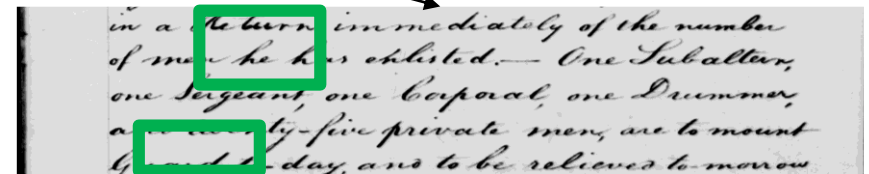 in a Return immediately of the number
of men he has enlisted. — One Subaltern,
one Sergeant, one Corporal, one Drummer,
and twenty-five private men, are to mount
Guard to-day, and to be relieved to-morrow